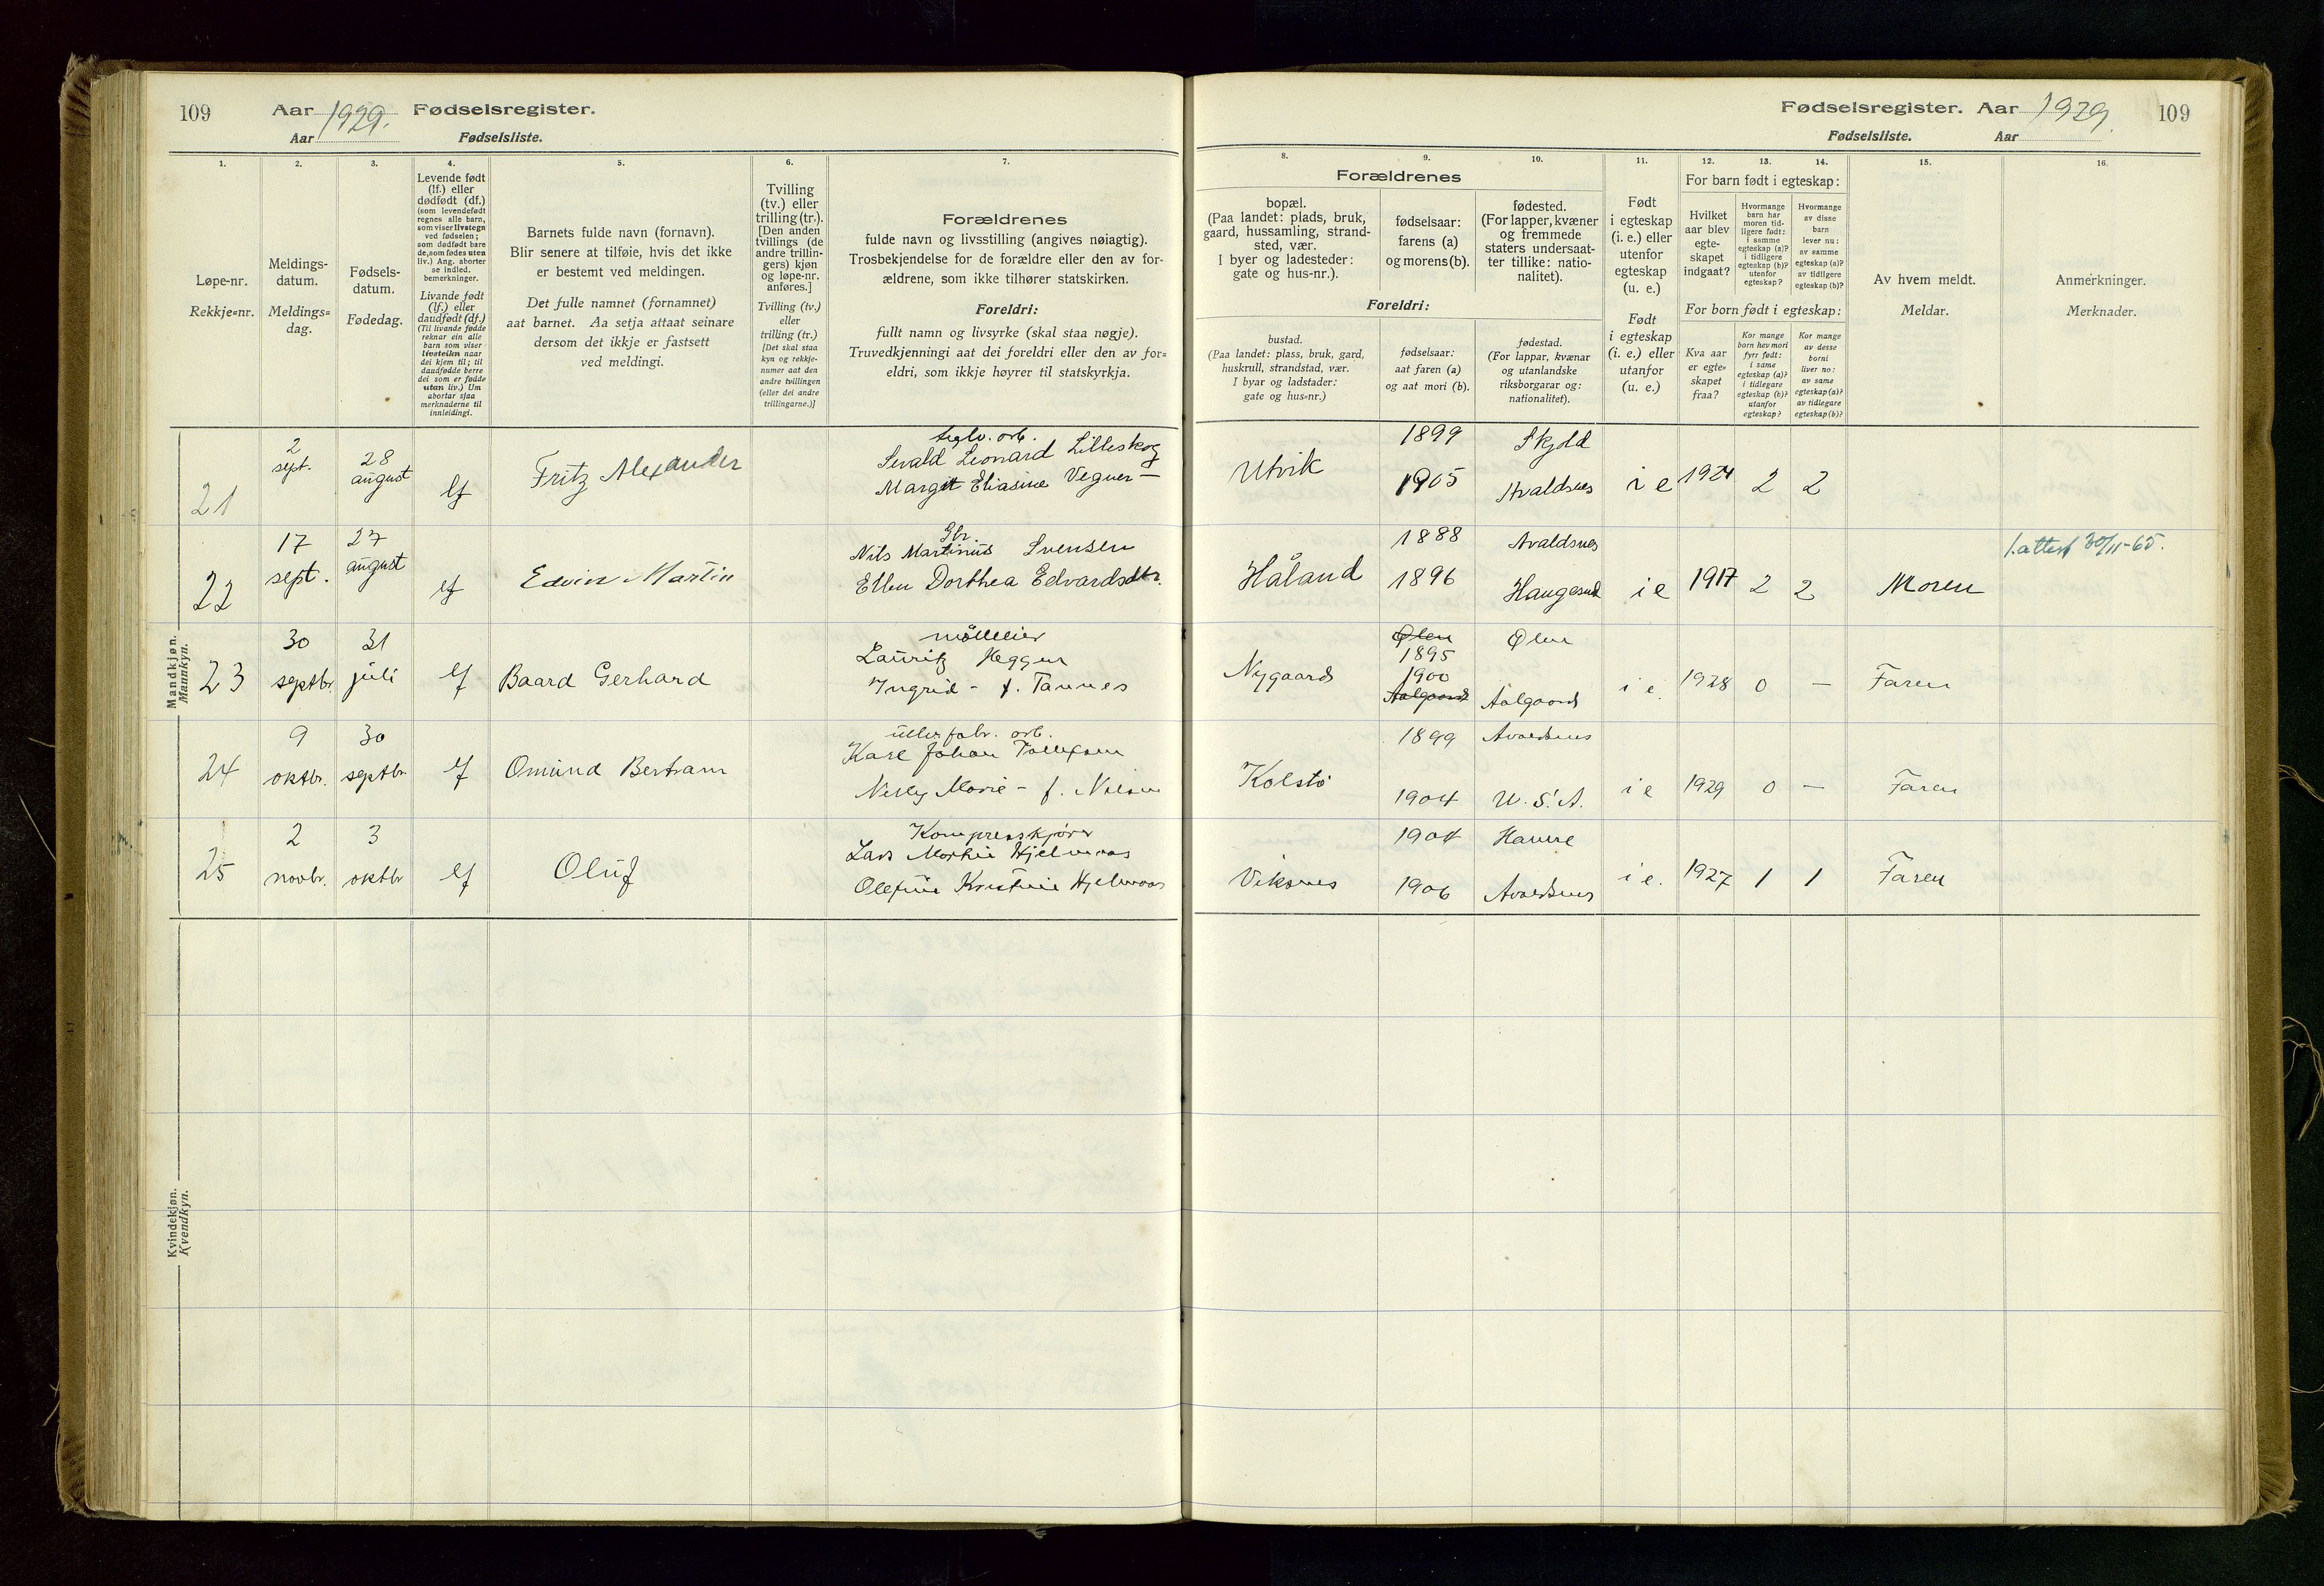 109 Aar 1929. Fødselsregister.
Aar Fødselsliste.
1. 2. 3. 4. 5. 6. 7.
Løpe-nr.
Rekkje=nr.
Meldings-
datum.
Meldings=
dag.
Fødsels-
datum.
Fødedag.
Levende født
(lf.) eller
dødfødt (df.)
(som levendefødt
regnes alle barn,
som viser livstegn
ved fødselen;
som dødfødt bare
de, som fødes uten
liv.) Ang. aborter
se indled.
bemerkninger.
Livande født
(lf.) eller
daudfødt (df.)
(Til livande fødde
reknar ein alle
barn som viser
livsteikn naar
dei kjem til; til
daudfødde berre
dei som er fødde
utan liv.) Um
abortar sjaa
merknaderne til
innleidingi.
Barnets fulde navn (fornavn).
Blir senere at tilføie, hvis det ikke
er bestemt ved meldingen.
Det fulle namnet (fornamnet)
aat barnet. Aa setja attaat seinare
dersom det ikkje er fastsett
ved meldingi.
Tvilling
(tv.) eller
trilling (tr.).
[Den anden
tvillings (de
andre trillin-
gers) kjøn
og løpe-nr.
anføres.]
Tvilling (tv.)
eller
trilling (tr.)
[Det skal staa
kyn og rekkje-
numer aat den
andre tvillingen
(eller dei andre
trillingarne.)]
Forældrenes
fulde navn og livsstilling (angives nøiagtig).
Trosbekjendelse for de forældre eller den av for-
ældrene, som ikke tilhører statskirken.
Foreldri:
fullt namn og livsyrke (skal staa nøgje).
Truvedkjenningi aat dei foreldri eller den av for=
eldri, som ikkje høyrer til statskyrkja.
Mandkjøn.
Mannkyn.
21
2
sept.
28
august
lf
Fritz Alexander
Sevald Leonard Lilleskog
Margit Eliasine Vegner —
22
17
sept.
27
august
lf
Edvin Martin
Gbr.
Nils Martinus Svensen
Ellen Dorthea Edvardsdtr.
23
30
septbr.
31
juli
lf
Baard Gerhard
mølleeier
Lauritz Heggen
Ingrid - f. Tannes
24
9
oktbr.
30
septbr.
lf
Omund Bertram
ullvfabr. arb.
Karl Johan Tollefsen
Nelly Marie - f. Nilsen
25
2
novbr.
3
oktbr
lf
Oluf
Lars Martin Hjelmaas
Olefine Kristine Hjelmaas
Kvindekjøn.
Kvendkyn.
Fødselsregister. Aar 1929. 109
Fødselsliste. Aar
8. 9. 10. 11. 12. 13. 14. 15. 16.
Forældrenes
bopæl.
(Paa landet: plads, bruk,
gaard, hussamling, strand-
sted, vær.
I byer og ladesteder:
gate og hus-nr.).
fødselsaar:
farens (a)
og morens (b).
fødested.
(For lapper, kvæner
og fremmede
staters undersaat-
ter tillike: natio-
nalitet).
Foreldri:
bustad.
(Paa landet: plass, bruk, gard,
huskrull, strandstad, vær.
I byar og ladstader:
gate og hus=nr.)
fødselsaar:
aat faren (a)
og aat mori (b).
fødestad.
(For lappar, kvænar
og utanlandske
riksborgarar og:
nationalitet).
Født
i egteskap
(i. e.) eller
utenfor
egteskap
(u. e.)
Født
i egteskap
(i. e.) eller
utanfor
(u. e.)
For barn født i egteskap:
Hvilket
aar blev
egte-
skapet
indgaat?
Hvormange
barn har
moren tid-
ligere født:
i samme
egteskap (a)?
i tidligere
egteskap (b)?
utenfor
egteskap?
Hvormange
av disse
barn
lever nu:
av samme
egteskap (a)?
av tidligere
egteskap (b)?
For born født i egteskap:
Kva aar
er egte=
skapet
fraa?
Kor mange
born hev mori
fyrr født:
i same
egteskap (a)?
i tidlegare
egteskap (b)?
utanfor
egteskap?
Kor mange
av desse
borni
liver no:
av same
egteskap (a)?
av tidlegare
egteskap (b)?
Av hvem meldt.
Meldar.
Anmerkninger.
Merknader.
Utvik
1899 Skjold
1905 Avaldsnes i e 1924 2 2
1888 Avaldsnes
Håland 1896 Haugesund i e 1917 2 2 Moren
1.attest 30/11-65.
Ølen Ølen
1895
Nygaard 1900
Aalgaard Aalgaard i e. 1928 0 — Faren
1899 Avaldsnes
Kolstø 1904 U.S.A. i e 1929 0 — Faren
1904 Hamre
Viksnes 1906 Avaldsnes i e. 1927 1 1 Faren